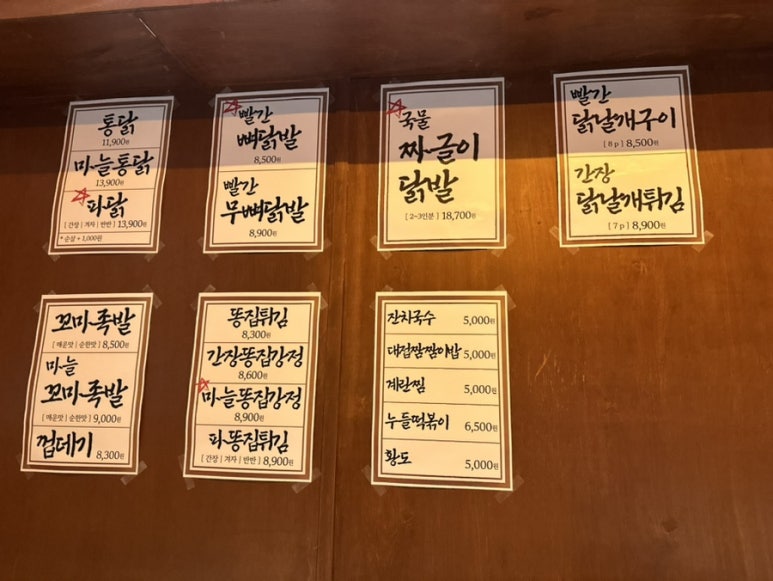 통닭
11,900원
마늘통닭
13,900원
파닭
[ 간장 | 겨자 | 반반 ] 13,900원
* 순살 + 1,000원
빨간
뼈닭발
8,500원
빨간
무뼈닭발
8,900원
국물
짜글이
닭발
[ 2~3인분 ] 18,700원
빨간
닭날개구이
[ 8p ] 8,500원
간장
닭날개튀김
[ 7p ] 8,900원
꼬마족발
[ 매운맛 | 순한맛 ] 8,500원
마늘
꼬마족발
[ 매운맛 | 순한맛 ] 9,000원
껍데기
8,300원
똥집튀김
8,300원
간장똥집강정
8,600원
마늘똥집강정
8,900원
파똥집튀김
[ 간장 | 겨자 | 반반 ] 8,900원
잔치국수 5,000원
대접짬짬이밥 5,000원
계란찜 5,000원
누들떡볶이 6,500원
황도 5,000원